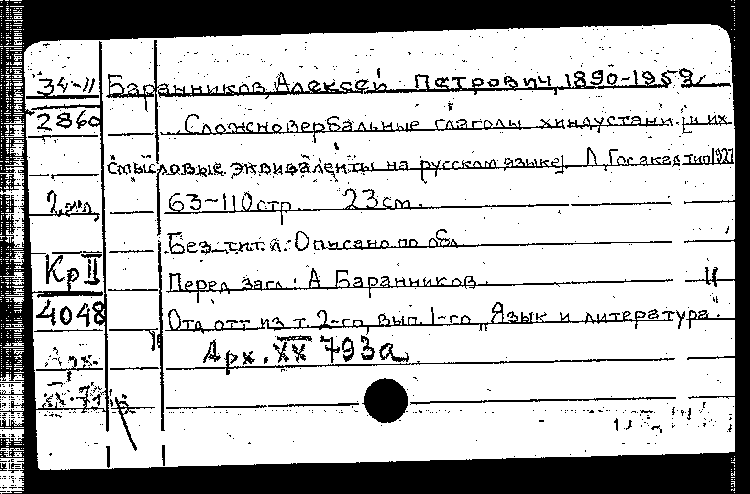 34-11 Баранников, Алексей Петрович, 1890-1952,
2860 Сложновербальные глаголы хиндустани [и их
смысловые эквиваленты на русском языке] Л, Гос. акад. тип. 1927
2 экз, 63-110 стр. 23 см.
Без тит. л.: Описано по обл
Кр II Перед загл: А Баранников.
4048 Отд отт из т. 2-го, вып. 1-го „Язык и литература".
Арх. Арх. XX 793а
XX-79